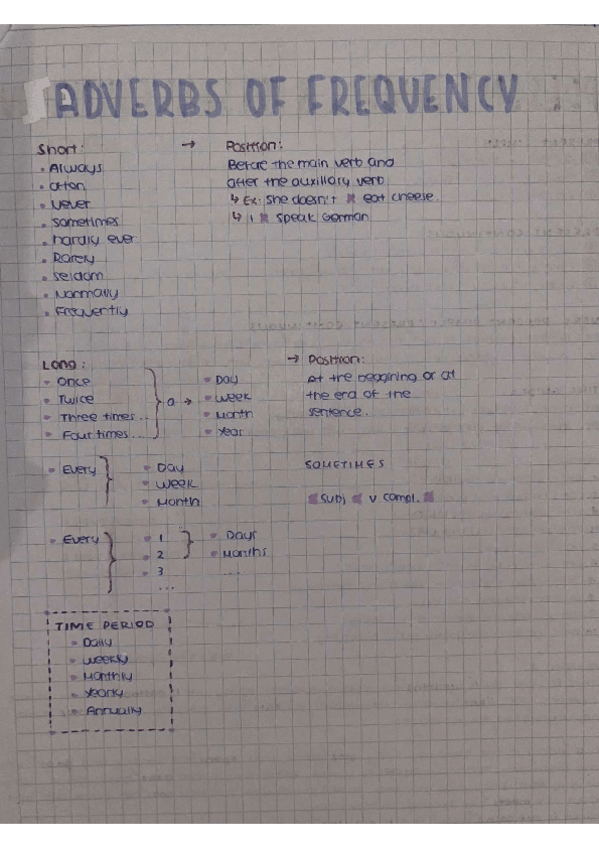 ADVERBS OF FREQUENCY
Short: → Position:
• Always Before the main verb and
• often after the auxiliary verb
• Never ↳ Ex: She doesn't * eat cheese.
• sometimes ↳ I * speak German
• hardly ever
• Rarely
• seldom
• Normally
• Frequently
Long: → Position:
• Once • Day At the beggining or at
• Twice a → • Week the end of the
• Three times... • Month sentence.
• Four times... • Year
• Every • Day SOMETIMES
• Week
• Month * Subj * v compl. *
• Every • 1 • Days
• 2 • Months
• 3 ...
...
TIME PERIOD
• Daily
• Weekly
• Monthly
• Yearly
• Annually